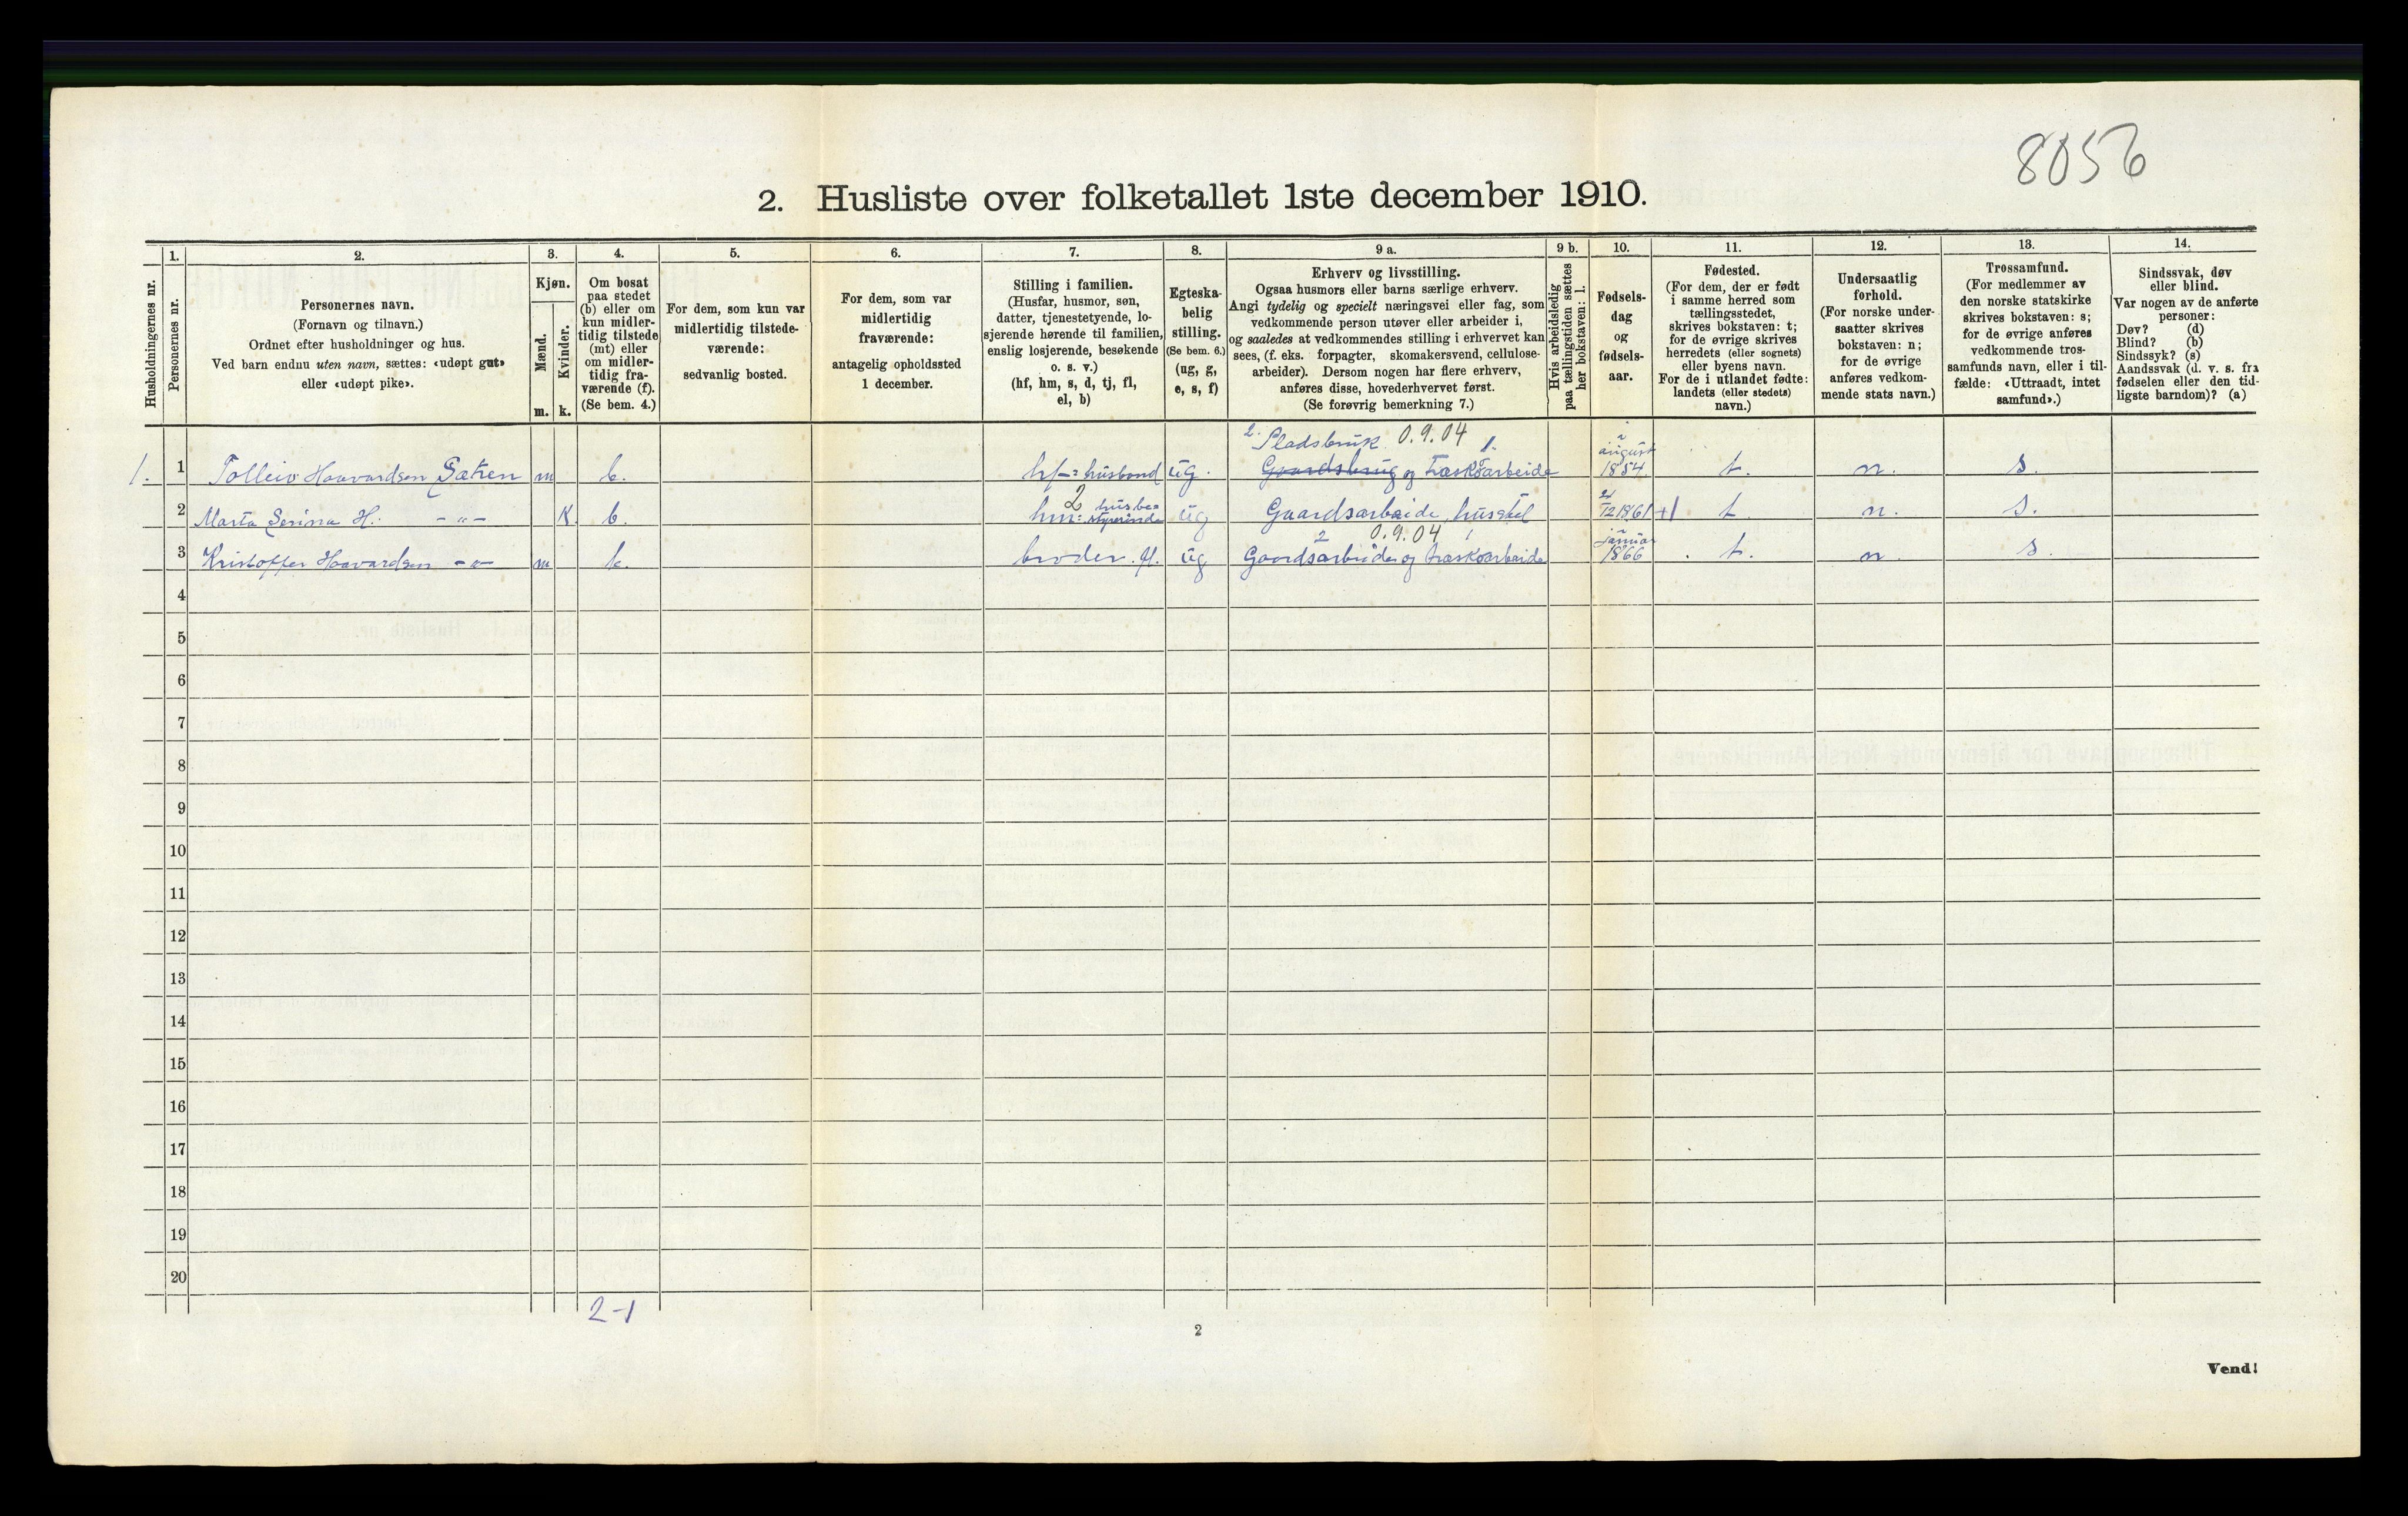 8056
2. Husliste over folketallet 1ste december 1910.
Husholdningernes nr.
1.
Personernes nr.
2.
Personernes navn.
(Fornavn og tilnavn.)
Ordnet efter husholdninger og hus.
Ved barn endnu uten navn, sættes: «udøpt gut»
eller «udøpt pike».
3.
Kjøn.
Mænd.
Kvinder.
m. k.
4.
Om bosat
paa stedet
(b) eller om
kun midler-
tidig tilstede
(mt) eller
om midler-
tidig fra-
værende (f).
(Se bem. 4.)
5.
For dem, som kun var
midlertidig tilstede-
værende:
sedvanlig bosted.
6.
For dem, som var
midlertidig
fraværende:
antagelig opholdssted
1 december.
7.
Stilling i familien.
(Husfar, husmor, søn,
datter, tjenestetyende, lo-
sjerende hørende til familien,
enslig losjerende, besøkende
o. s. v.)
(hf, hm, s, d, tj, fl,
el, b)
8.
Egteska-
belig
stilling.
(Se bem. 6.)
(ug, g,
e, s, f)
9 a.
Erhverv og livsstilling.
Ogsaa husmors eller barns særlige erhverv.
Angi tydelig og specielt næringsvei eller fag, som
vedkommende person utøver eller arbeider i,
og saaledes at vedkommendes stilling i erhvervet kan
sees, (f. eks. forpagter, skomakersvend, cellulose-
arbeider). Dersom nogen har flere erhverv,
anføres disse, hovederhvervet først.
(Se forøvrig bemerkning 7.)
9 b.
Hvis arbeidsledig
paa tællingstiden sættes
her bokstaven: l.
10.
Fødsels-
dag
og
fødsels-
aar.
11.
Fødested.
(For dem, der er født
i samme herred som
tællingsstedet,
skrives bokstaven: t;
for de øvrige skrives
herredets (eller sognets)
eller byens navn.
For de i utlandet fødte:
landets (eller stedets)
navn.)
12.
Undersaatlig
forhold.
(For norske under-
saatter skrives
bokstaven: n;
for de øvrige
anføres vedkom-
mende stats navn.)
13.
Trossamfund.
(For medlemmer av
den norske statskirke
skrives bokstaven: s;
for de øvrige anføres
vedkommende tros-
samfunds navn, eller i til-
fælde: «Uttraadt, intet
samfund».)
14.
Sindssvak, døv
eller blind.
Var nogen av de anførte
personer:
Døv? (d)
Blind? (b)
Sindssyk? (s)
Aandssvak (d. v. s. fra
fødselen eller den tid-
ligste barndom)? (a)
2. Pladsbruk 0.9.04 1.
1. 1 Tolleiv Haavardsen Sætren m b. hf = husbond ug. Gaardsbrug og Træskoarbeide i august 1854 t. n. s.
2 Marta Serina H. -"- K b. hm = 2 husbe=styrerinde ug Gaardsarbeide, husstel 21/12 1861 +1 t n. s.
2 0.9.04 1
3 Kristoffer Haavardsen -"- m b. broder. fl. ug Gaardsarbeide og træskoarbeide januar 1866 t. n. s.
4
5
6
7
8
9
10
11
12
13
14
15
16
17
18
19
20
2-1
2
Vend!